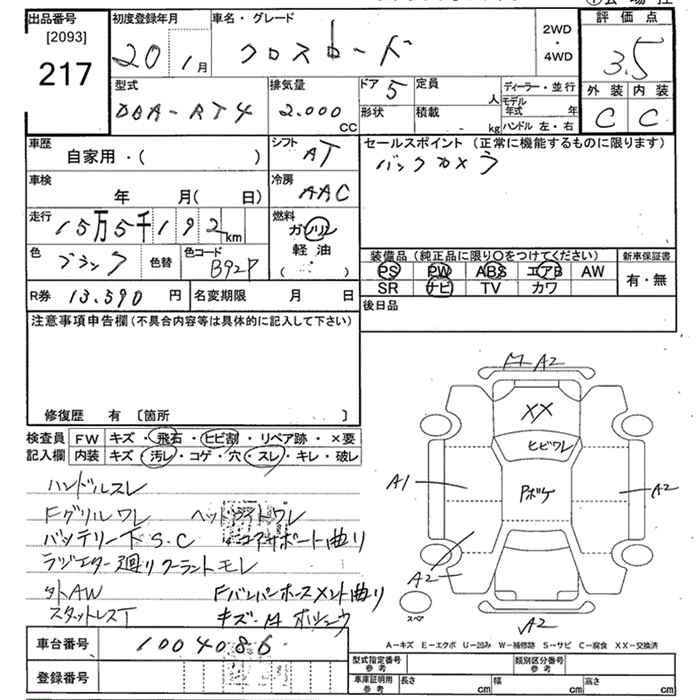 出品番号 [2093] 217
初度登録年月 20 1月
車名・グレード クロスロード
2WD・4WD
評価点 3.5
外装 C 内装 C
型式 DBA-RT4
排気量 2.000 CC
ドア 5
形状
定員 人
積載 kg
ディーラー・並行
モデル年式 年
ハンドル 左・右
車歴 自家用・( )
シフト AT
セールスポイント(正常に機能するものに限ります)
バックカメラ
車検 年 月( 日)
冷房 AAC
走行 15万5千192km
燃料 ガソリン 軽油 ( ・ )
色 ブラック
色替
色コード B92P
装備品(純正品に限り○をつけてください)
PS PW ABS エアB AW
SR ナビ TV カワ
新車保証書 有・無
R券 13.590 円
名変期限 月 日
後日品
注意事項申告欄(不具合内容等は具体的に記入して下さい)
修復歴 有 [箇所 ]
検査員記入欄
FW キズ・飛石・ヒビ割・リペア跡・×要
内装 キズ・汚レ・コゲ・穴・スレ・キレ・破レ
ハンドルスレ
Fグリルワレ ヘッドライトワレ
バッテリー下S.C コアサポート曲り
ラジエター廻りクーラントモレ
外AW Fバンパーホースメント曲り
スタットレスT
M A2
XX
ヒビワレ
A1
Pボケ
A2
A2
スペア
A2
車台番号 1004086
登録番号
A-キズ E-エクボ U-凹み W-補修跡 S-サビ C-腐食 XX-交換済
型式指定番号 参考
類別区分番号 参考
車庫証明用 参考
長さ cm 幅 cm 高さ cm